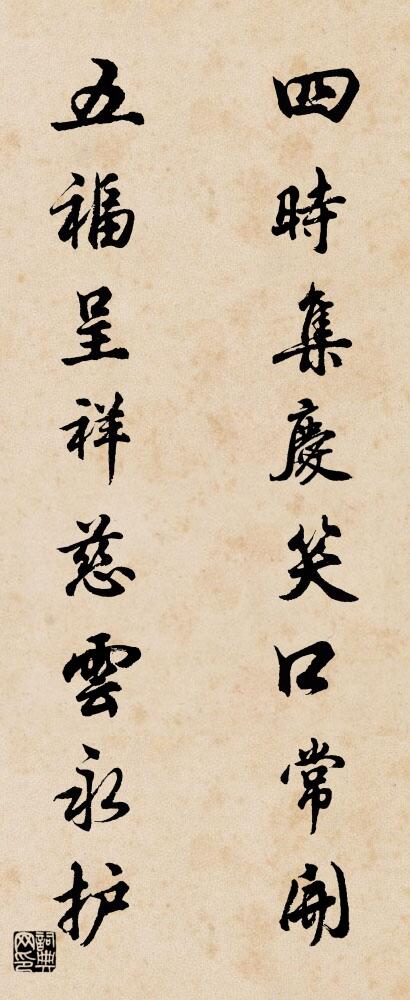 四時集慶笑口常開
五福呈祥慈雲永护
詞典网印